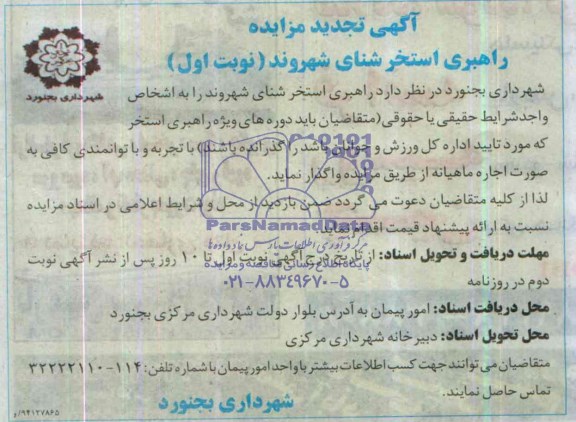 آگهی تجدید مزایده
راهبری استخر شنای شهروند (نوبت اول)
شهرداری بجنورد
شهرداری بجنورد در نظر دارد راهبری استخر شنای شهروند را به اشخاص
واجد شرایط حقیقی یا حقوقی (متقاضیان باید دوره های ویژه راهبری استخر
که مورد تایید اداره کل ورزش و جوانان باشد را گذرانده باشند) با تجربه و با توانمندی کافی به
صورت اجاره ماهیانه از طریق مزایده واگذار نماید.
لذا از کلیه متقاضیان دعوت می گردد ضمن بازدید از محل و شرایط اعلامی در اسناد مزایده
نسبت به ارائه پیشنهاد قیمت اقدام نمایند.
ParsNamadData
مرکز فرآوری اطلاعات پارس نماد داده ها
مهلت دریافت و تحویل اسناد: از تاریخ درج آگهی نوبت اول تا ۱۰ روز پس از نشر آگهی نوبت
پایگاه اطلاع رسانی مناقصه و مزایده
دوم در روزنامه
۰۲۱-۸۸۳۴۹۶۷۰-۵
محل دریافت اسناد: امور پیمان به آدرس بلوار دولت شهرداری مرکزی بجنورد
محل تحویل اسناد: دبیرخانه شهرداری مرکزی
متقاضیان می توانند جهت کسب اطلاعات بیشتر با واحد امور پیمان با شماره تلفن: ۱۱۴-۳۲۲۲۲۱۱۰
تماس حاصل نمایند.
شهرداری بجنورد
۹۴۱۲۷۸۶۵/و